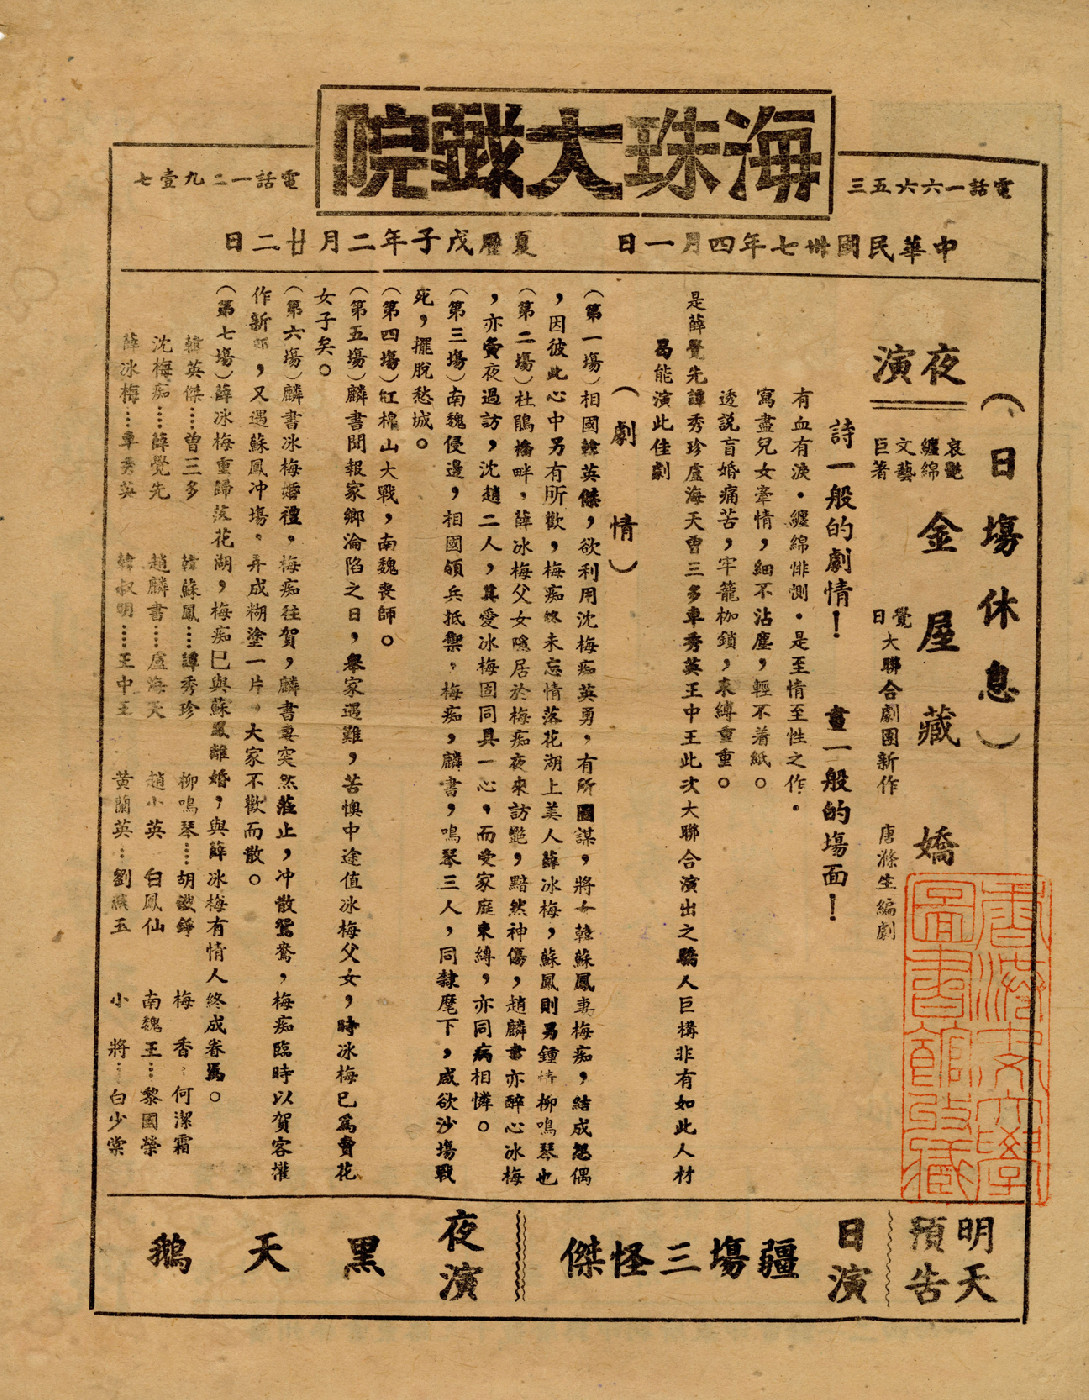 海珠大戲院
電話一六六五三
電話一二九壹七
中華民國卅七年四月一日
夏曆戊子年二月廿二日
(日場休息)
夜演
哀艷
纏綿
文藝
巨著
金屋藏嬌
覺日大聯合劇團新作
唐滌生編劇
詩一般的劇情！
畫一般的場面！
有血有淚，纏綿悱惻，是至情至性之作，
寫盡兒女牽情，細不沾塵，輕不着紙。
透説盲婚痛苦，牢籠枷鎖，束縛重重。
是薛覺先譚秀珍盧海天曾三多車秀英王中王此次大聯合演出之驕人巨構非有如此人材
曷能演此佳劇
(劇情)
(第一場)相國韓英傑，欲利用沈梅痴英勇，有所圖謀，將女韓蘇鳳妻梅痴，結成怨偶
，因彼此心中另有所歡，梅痴終未忘情落花湖上美人薛冰梅，蘇鳳則另鍾情柳鳴琴也
(第二場)杜鵑橋畔，薛冰梅父女隱居於梅痴夜來訪艷，黯然神傷，趙麟書亦醉心冰梅
，亦夤夜過訪，沈趙二人，眞愛冰梅固同具一心，而受家庭束縛，亦同病相憐。
(第三場)南魏侵邊，相國領兵抵禦，梅痴，麟書，鳴琴三人，同隸麾下，咸欲沙場戰
死，擺脫愁城。
(第四場)紅棉山大戰，南魏喪師。
(第五場)麟書聞報家鄉淪陷之日，舉家遇難，苦懊中途值冰梅父女，時冰梅已為賣花
女子矣。
(第六場)麟書冰梅婚禮，梅痴往賀，麟書妻突然蒞止，冲散鴛鴦，梅痴臨時以賀客權
作新郎，又遇蘇鳳冲場。弄成糊塗一片，大家不歡而散。
(第七場)薛冰梅重歸落花湖，梅痴巳與蘇鳳離婚，與薛冰梅有情人終成眷焉。
韓英傑……曾三多
韓蘇鳳……譚秀珍
柳鳴琴……胡鐵錚
梅香…何潔霜
沈梅痴…薛覺先
趙麟書……盧海天
趙小英…白鳳仙
南魏王…黎國榮
薛冰梅…車秀英
韓叔明……王中王
黃蘭英…劉美玉
小將…白少棠
明天
預告
日演
疆場三怪傑
夜演
黑天鵝
香港中文大學
圖書館改藏